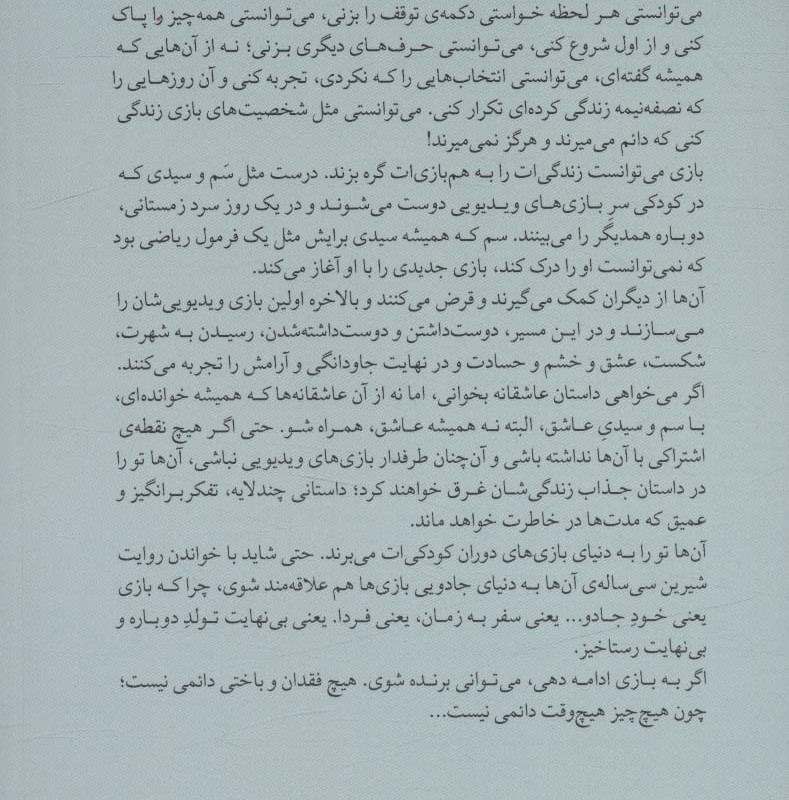 می‌توانستی هر لحظه خواستی دکمه‌ی توقف را بزنی، می‌توانستی همه‌چیز را پاک
کنی و از اول شروع کنی، می‌توانستی حرف‌های دیگری بزنی؛ نه از آن‌هایی که
همیشه گفته‌ای، می‌توانستی انتخاب‌هایی را که نکردی، تجربه کنی و آن روزهایی را
که نصفه‌نیمه زندگی کرده‌ای تکرار کنی. می‌توانستی مثل شخصیت‌های بازی زندگی
کنی که دائم می‌میرند و هرگز نمی‌میرند!
بازی می‌توانست زندگی‌ات را به هم‌بازی‌ات گره بزند. درست مثل سَم و سیدی که
در کودکی سرِ بازی‌های ویدیویی دوست می‌شوند و در یک روز سرد زمستانی،
دوباره همدیگر را می‌بینند. سم که همیشه سیدی برایش مثل یک فرمول ریاضی بود
که نمی‌توانست او را درک کند، بازی جدیدی را با او آغاز می‌کند.
آن‌ها از دیگران کمک می‌گیرند و قرض می‌کنند و بالاخره اولین بازی ویدیویی‌شان را
می‌سازند و در این مسیر، دوست‌داشتن و دوست‌داشته‌شدن، رسیدن به شهرت،
شکست، عشق و خشم و حسادت و در نهایت جاودانگی و آرامش را تجربه می‌کنند.
اگر می‌خواهی داستان عاشقانه بخوانی، اما نه از آن عاشقانه‌ها که همیشه خوانده‌ای،
با سم و سیدیِ عاشق، البته نه همیشه عاشق، همراه شو. حتی اگر هیچ نقطه‌ی
اشتراکی با آن‌ها نداشته باشی و آن‌چنان طرفدار بازی‌های ویدیویی نباشی، آن‌ها تو را
در داستان جذاب زندگی‌شان غرق خواهند کرد؛ داستانی چندلایه، تفکربرانگیز و
عمیق که مدت‌ها در خاطرت خواهد ماند.
آن‌ها تو را به دنیای بازی‌های دوران کودکی‌ات می‌برند. حتی شاید با خواندن روایت
شیرین سی‌ساله‌ی آن‌ها به دنیای جادویی بازی‌ها هم علاقه‌مند شوی، چرا که بازی
یعنی خودِ جادو... یعنی سفر به زمان، یعنی فردا. یعنی بی‌نهایت تولدِ دوباره و
بی‌نهایت رستاخیز.
اگر به بازی ادامه دهی، می‌توانی برنده شوی. هیچ فقدان و باختی دائمی نیست؛
چون هیچ‌چیز هیچ‌وقت دائمی نیست...